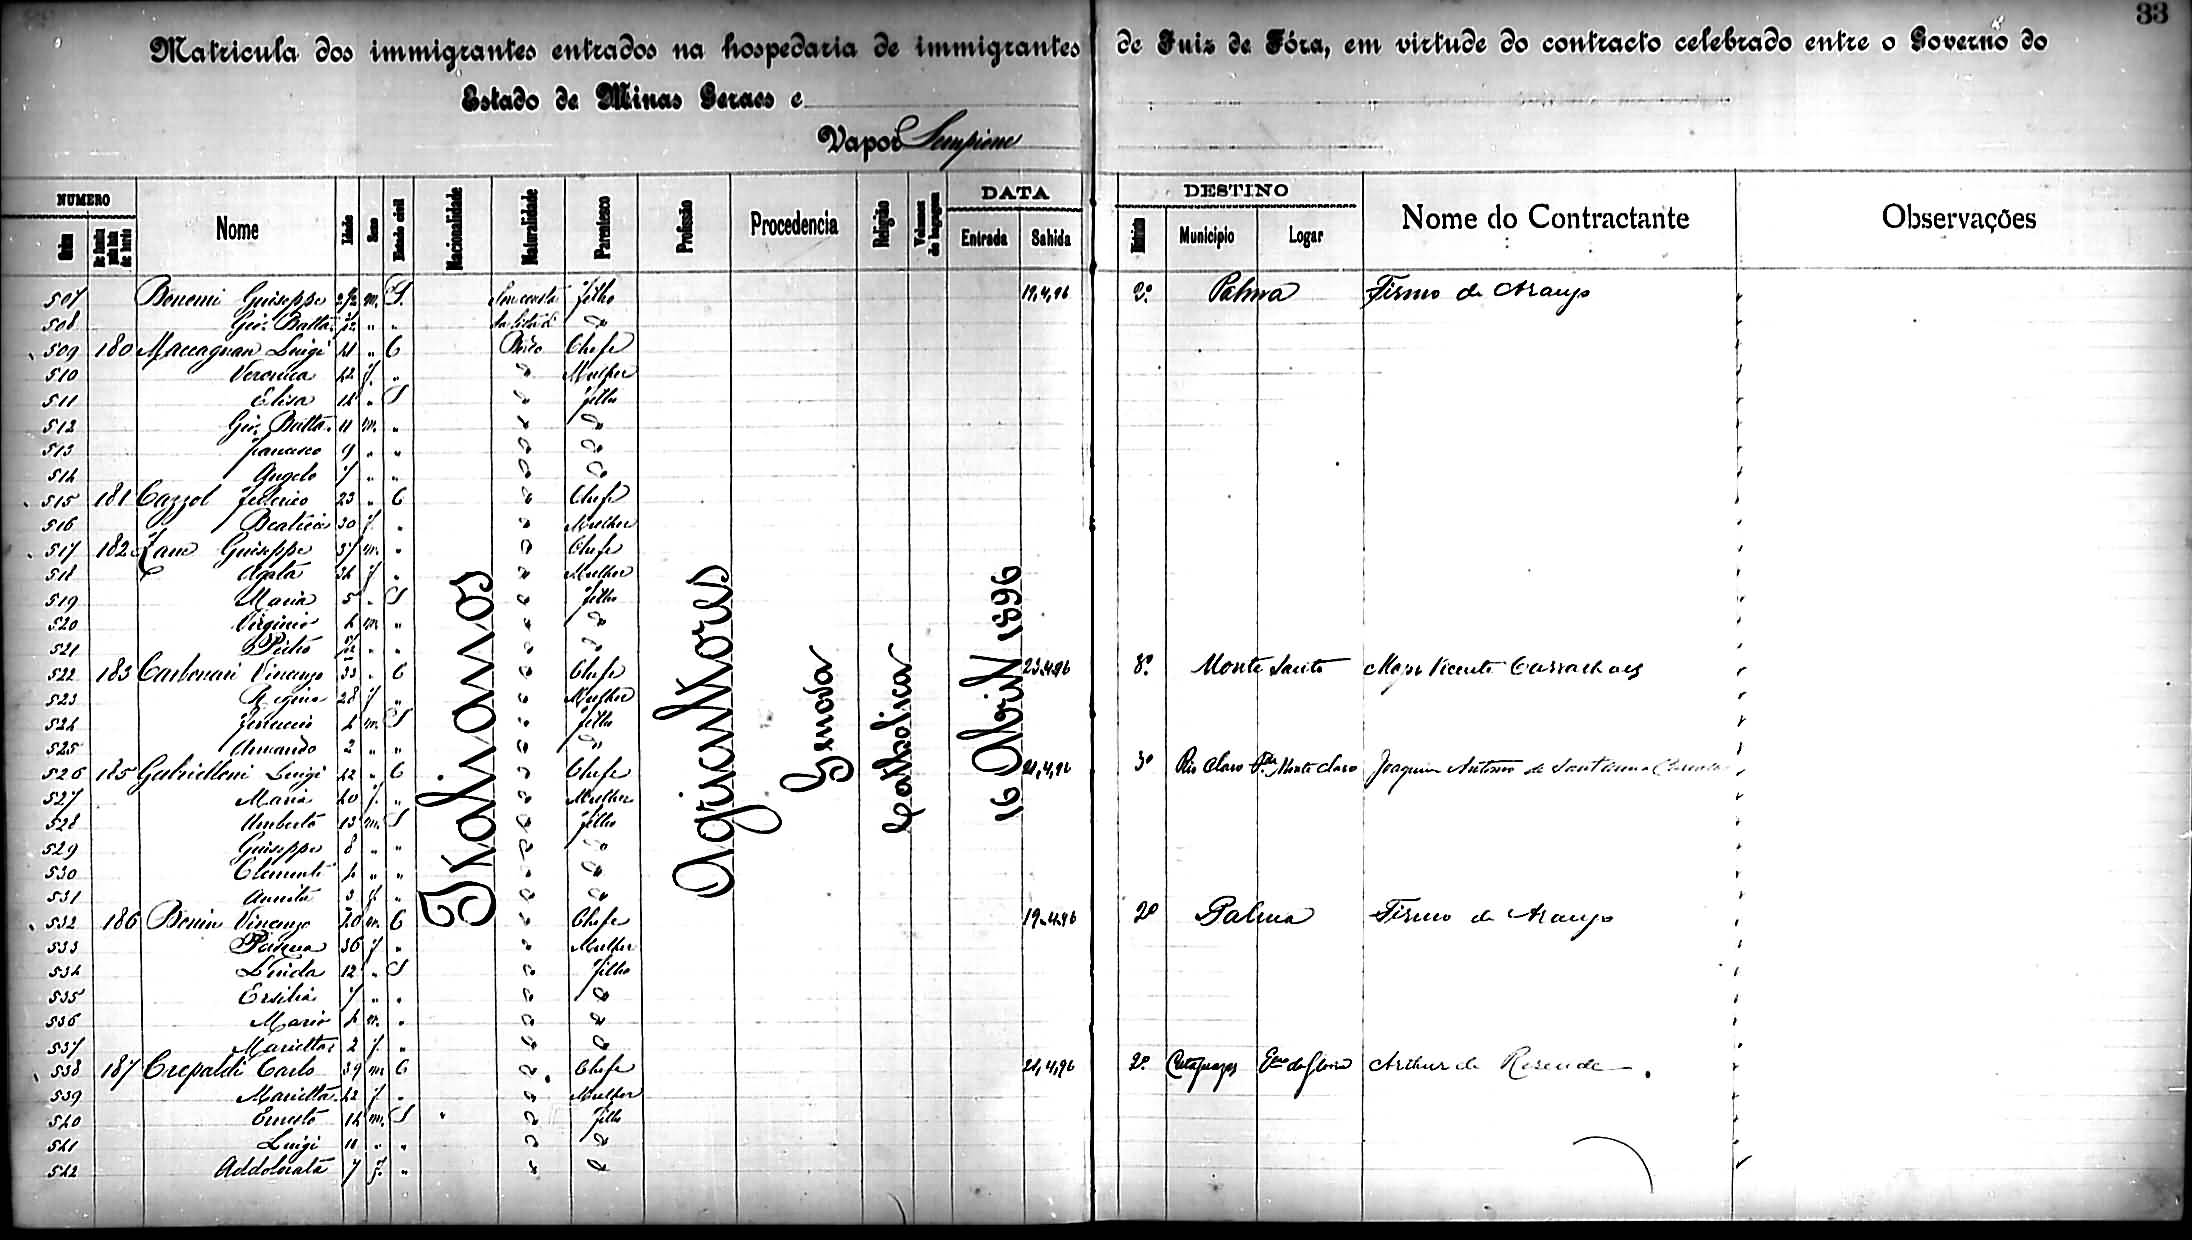 33
Matricula dos immigrantes entrados na hospedaria de immigrantes de Juiz de Fóra, em virtude do contracto celebrado entre o Governo do
Estado de Minas Geraes e
Vapor Sempione
NUMERO Nome Idade Sexo Estado civil Nacionalidade Naturalidade Parentesco Profissão Procedencia Religião Volumes de bagagem DATA Entrada Sahida DESTINO Districto Municipio Logar Nome do Contractante Observações
Italianos Agricultores Genova Catholica 16 Abril 1896
507 Bonomi Giuseppe m. S. filho 19,4,96 2º Palma Firmo de Araujo
508 Gio. Batta. " "
509 180 Maccagnan Luigi 41 " C Chefe
510 Veronica 42 f. " Mulher
511 Elisa 14 " S filho
512 Gio. Batta. 11 m. "
513 Francesco 9 " "
514 Angelo 7 " "
515 181 Cazzol Federico 23 " C Chefe
516 Beatrice 30 f. " Mulher
517 182 Zane Giuseppe 37 m. " Chefe
518 Agata 34 f " Mulher
519 Maria 5 " S filho
520 Virginio 4 m "
521 Pietro " "
522 183 Carbonari Vincenzo 33 " C Chefe 23,4,96 3º Monte Santo Major Vicente Carvalhaes
523 Regina 28 f " Mulher
524 Ferruccio 4 m. S filho
525 Armando 2 " "
526 185 Gabrielloni Luigi 42 " C Chefe 21,4,96 3º Rio Claro Monte Claro Joaquim Antonio de Sant'Anna
527 Maria 40 f. " Mulher
528 Umberto 13 m. S filho
529 Giuseppe 8 " "
530 Clemente 4 " "
531 Annita 3 f. "
532 186 Bonin Vincenzo 40 m. C Chefe 19,4,96 2º Palma Firmo de Araujo
533 Pasqua 36 f " Mulher
534 Linda 12 " S filho
535 Ersilia 7 " "
536 Mario 4 m. "
537 Marietta 2 f. "
538 187 Crepaldi Carlo 39 m C Chefe 21,4,96 2º Cataguazes da Gloria Arthur de Resende
539 Marietta 42 f " Mulher
540 Ernesto 14 m. S filho
541 Luigi 11 " "
542 Addolorata 7 f. "